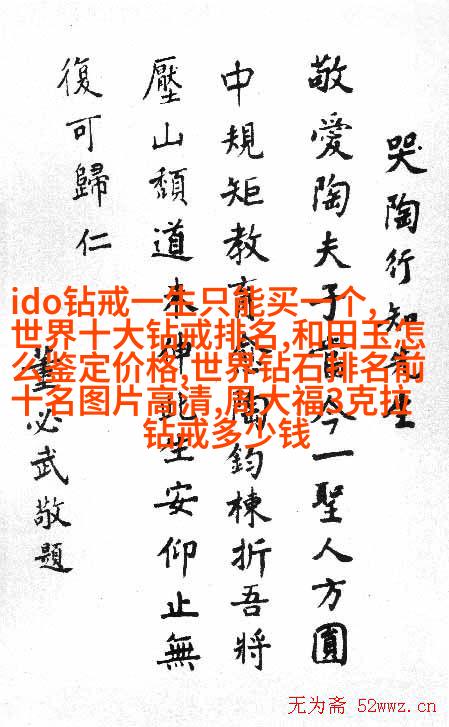 哭陶行知先生
敬愛陶夫子當今一聖人方圓
中規矩教育陶鈞棟折吾將
壓山頹道未伸此生安仰止無
復可歸仁
董必武敬題
ido钻戒一生只能买一个,
世界十大钻戒排名,和田玉怎
么鉴定价格,世界钻石排名前
十名图片高清,周大福3克拉
钻戒多少钱
无为斋 52wwz.cn